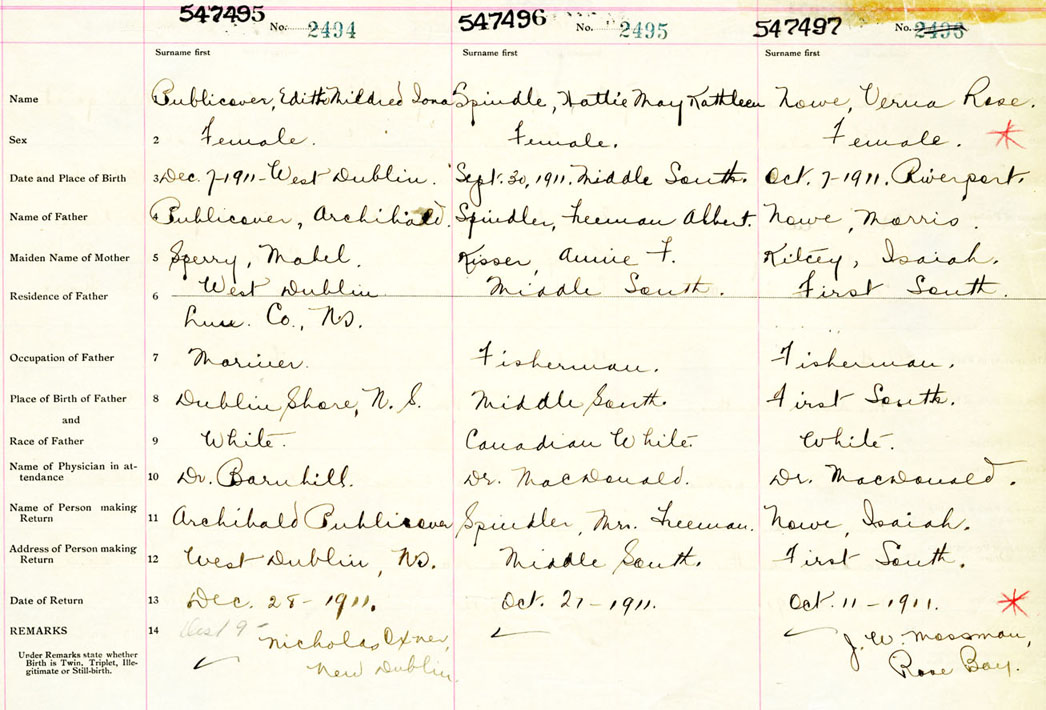 547495 No. 2494 547496 No. 2495 547497 No. 2496
Surname first Surname first Surname first
Name 1 Publicover, Edith Mildred Iona Spindle, Hattie May Kathleen Nowe, Verna Rose.
Sex 2 Female. Female. Female.
Date and Place of Birth 3 Dec. 7-1911-West Dublin. Sept. 30, 1911. Middle South. Oct. 7-1911. Riverport.
Name of Father 4 Publicover, Archibald. Spindler, Freeman Albert. Nowe, Morris.
Maiden Name of Mother 5 Sperry, Mabel. Kisser, Annie F. Kilcey, Isaiah.
Residence of Father 6 West Dublin Middle South. First South.
Lun. Co., NS.
Occupation of Father 7 Mariner. Fisherman. Fisherman.
Place of Birth of Father 8 Dublin Shore, N. S. Middle South. First South.
and
Race of Father 9 White. Canadian White. White.
Name of Physician in at-
tendance 10 Dr. Barnhill. Dr. MacDonald. Dr. MacDonald.
Name of Person making
Return 11 Archibald Publicover Spindler, Mrs. Freeman. Nowe, Isaiah.
Address of Person making
Return 12 West Dublin, NS. Middle South. First South.
Date of Return 13 Dec. 28-1911. Oct. 27-1911. Oct. 11-1911.
REMARKS 14 Nicholas Oxner, J. W. Mossman,
Under Remarks state whether New Dublin. Rose Bay.
Birth is Twin, Triplet, Ille-
gitimate or Still-birth.